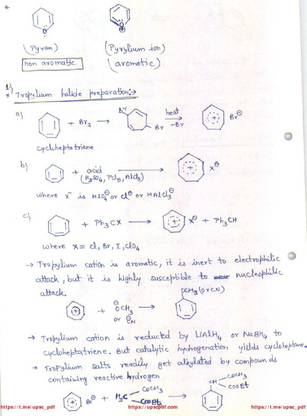 (Pyran) (Pyrylium ion)
non aromatic (aromatic)
* Tropylium halide preparation:→
a) + Br₂ → Br Br heat -Br Br⊖
cycloheptatriene
b) + acid X⊖
(H₂SO₄, PCl₅, AlCl₃)
where X⁻ is HSO₄⊖ or Cl⊖ or HAlCl₃⊖
c) + Ph₃CX → X⊖ + Ph₃CH
where X = Cl, Br, I, ClO₄
→ Tropylium cation is aromatic, it is inert to electrophilic
attack, but it is highly susceptible to nucleophilic
attack.
+ ⊖OCH₃ or CN → OCH₃ (or CN)
→ Tropylium cation is reducted by LiAlH₄ or NaBH₄ to
cycloheptatriene. But catalytic hydrogenation yields cycloheptane.
→ Tropylium salts readily get alkylated by compounds
containing reactive hydrogen
Br⊖ + H₂C COCH₃ COOEt → CH COCH₃ COOEt
https://t.me/upsc_pdf https://upscpdf.com https://t.me/upsc_pdf